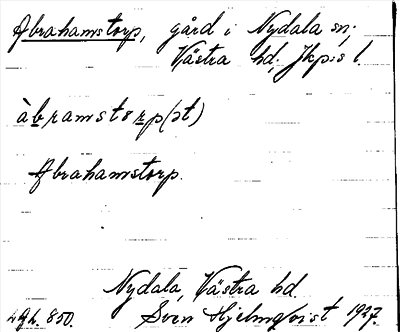 Abrahamstorp, gård i Nydala sn;
Västra hd; Jkp:s l.
àbramstorp(ɔt)
Abrahamstorp.
Nydala, Västra hd.
Sven Hjelmqvist 1927.
850.